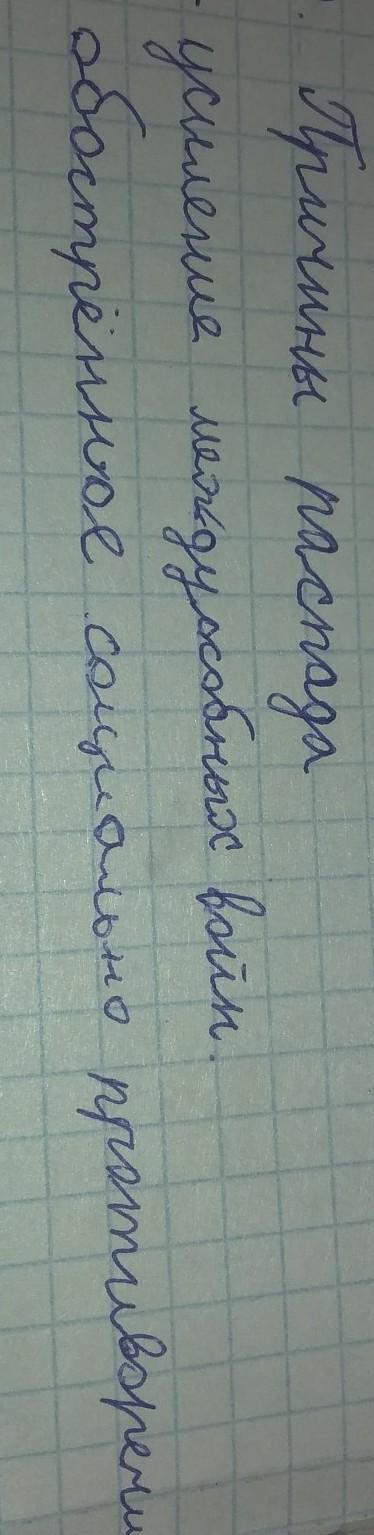 Причины распада
- усиление междуусобных войн.
обострённое социально противоречи